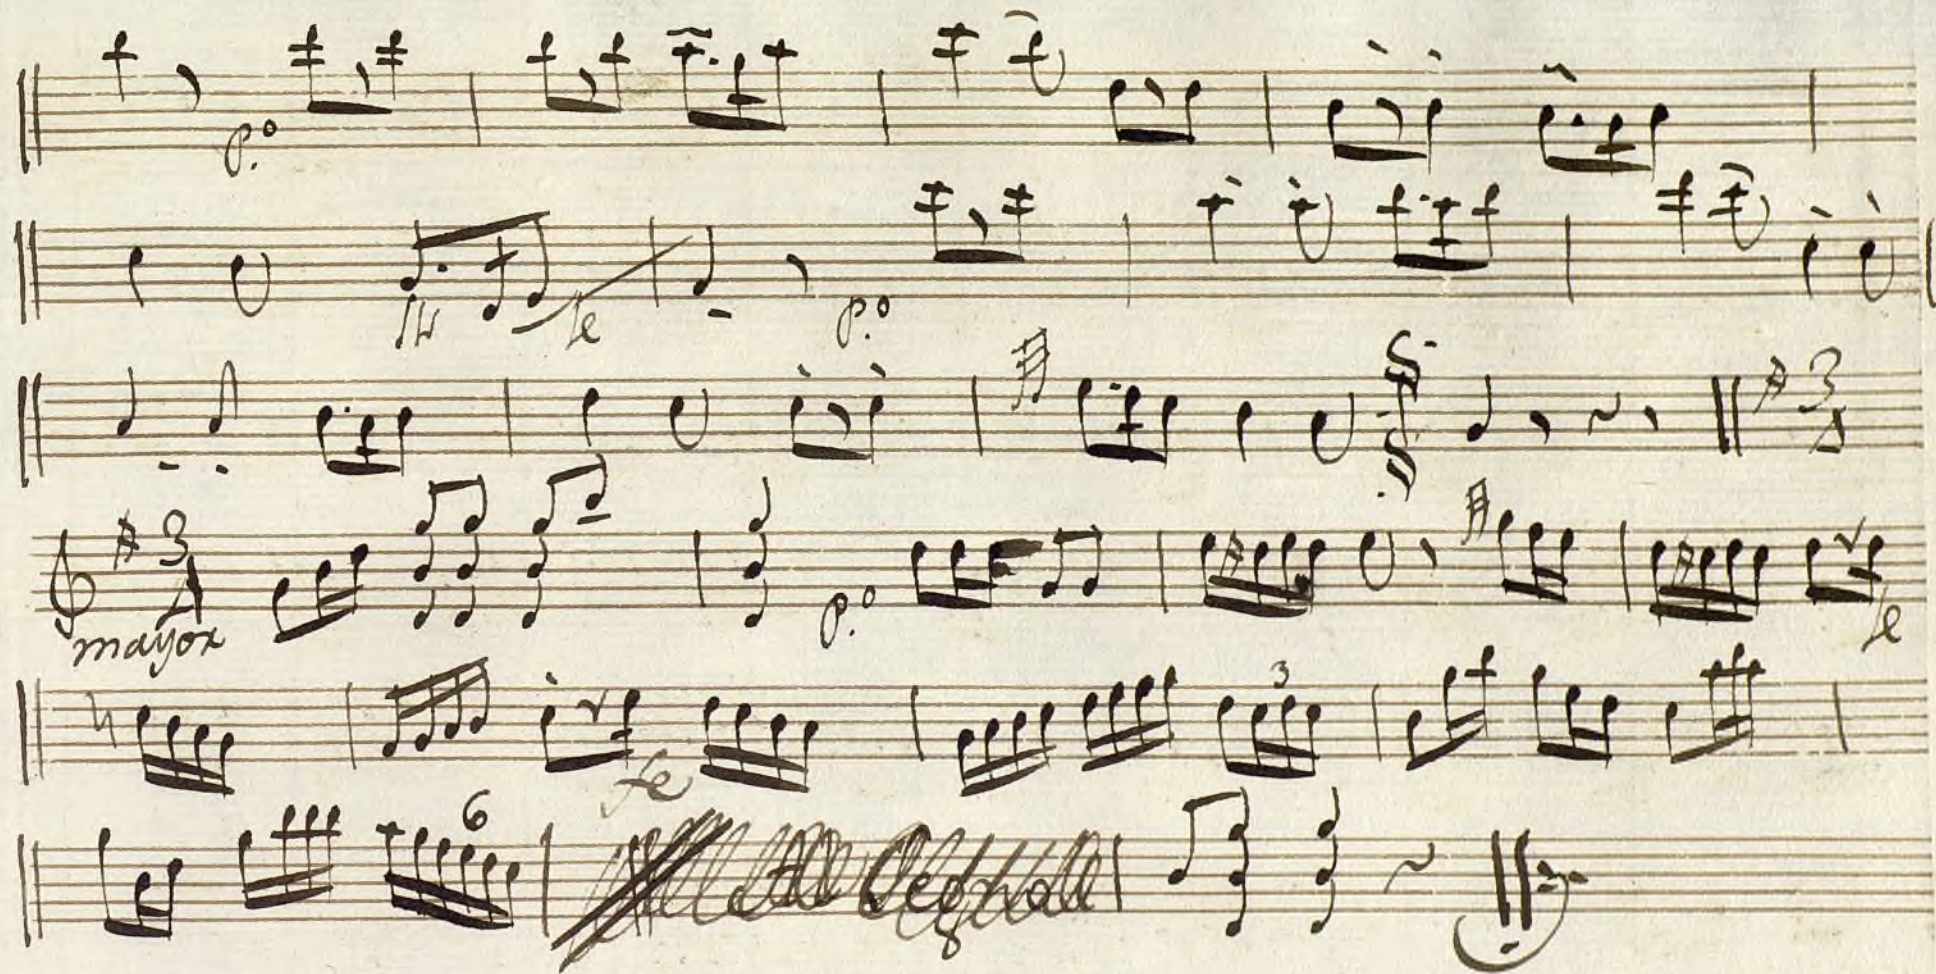 p.º
fe p.º
3
3 mayor p.º fe
3 fe
6